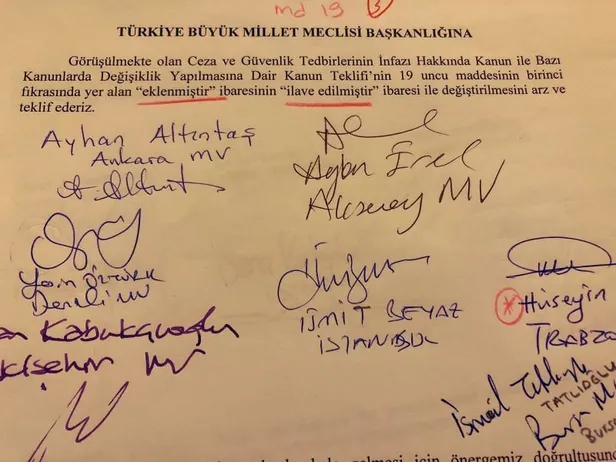 md 19 3
TÜRKİYE BÜYÜK MİLLET MECLİSİ BAŞKANLIĞINA
Görüşülmekte olan Ceza ve Güvenlik Tedbirlerinin İnfazı Hakkında Kanun ile Bazı
Kanunlarda Değişiklik Yapılmasına Dair Kanun Teklifi'nin 19 uncu maddesinin birinci
fıkrasında yer alan “eklenmiştir” ibaresinin “ilave edilmiştir” ibaresi ile değiştirilmesini arz ve
teklif ederiz.
Ayhan Altıntaş
Ankara MV
Ayhan Erel
Aksaray MV
Yasin Öztürk
Denizli MV
Kabukcuoğlu
kişehir MV
ÜMİT BEYAZ
İSTANBUL
Hüseyin
TRABZO
İsmail Tatlıoğlu
TATLIOĞLU
Bursa M
BURS
için önergemiz doğrultusund